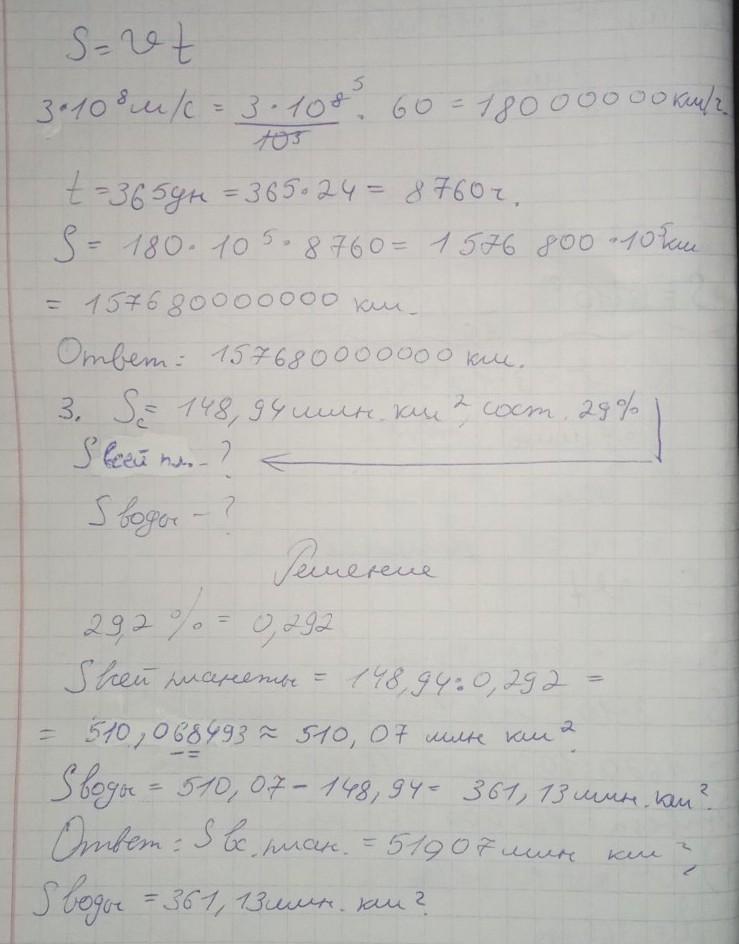 S = υt
3·10⁸ м/с = 3·10⁸ ⁵ / 10³ · 60 = 18000000 км/ч.
t = 365дн = 365·24 = 8760ч.
S = 180·10⁵·8760 = 1576 800·10⁵км
= 157680000000 км.
Ответ: 157680000000 км.
3. Sс = 148,94 млн. км², сост. 29%
S всей пл. – ?
S воды – ?
Решение
29,2 % = 0,292
S всей планеты = 148,94 : 0,292 =
= 510,068493 ≈ 510,07 млн км².
S воды = 510,07 – 148,94 = 361,13 млн. км².
Ответ: S вс. план. = 51907 млн км²,
S воды = 361,13 млн. км².